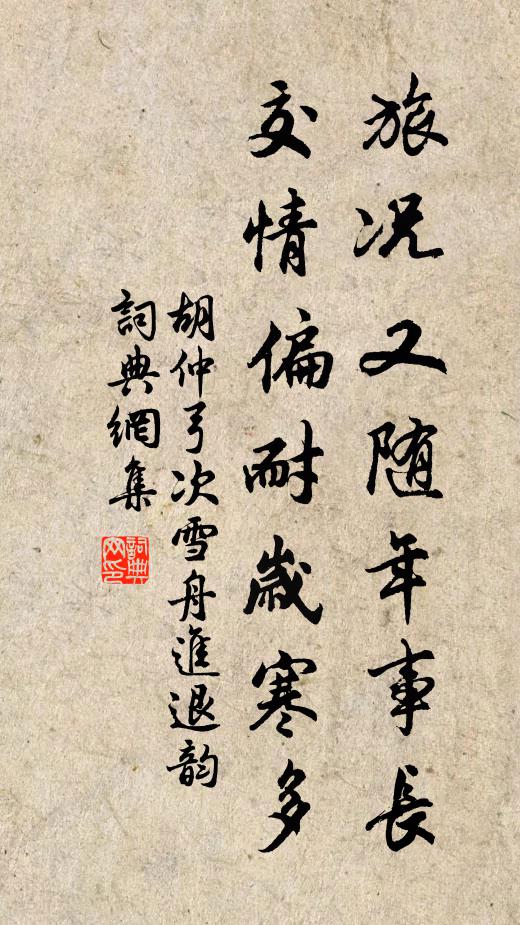 旅况又随年事長
交情偏耐歲寒多
胡仲弓次雪舟進退韵
詞典網集
詞典網印